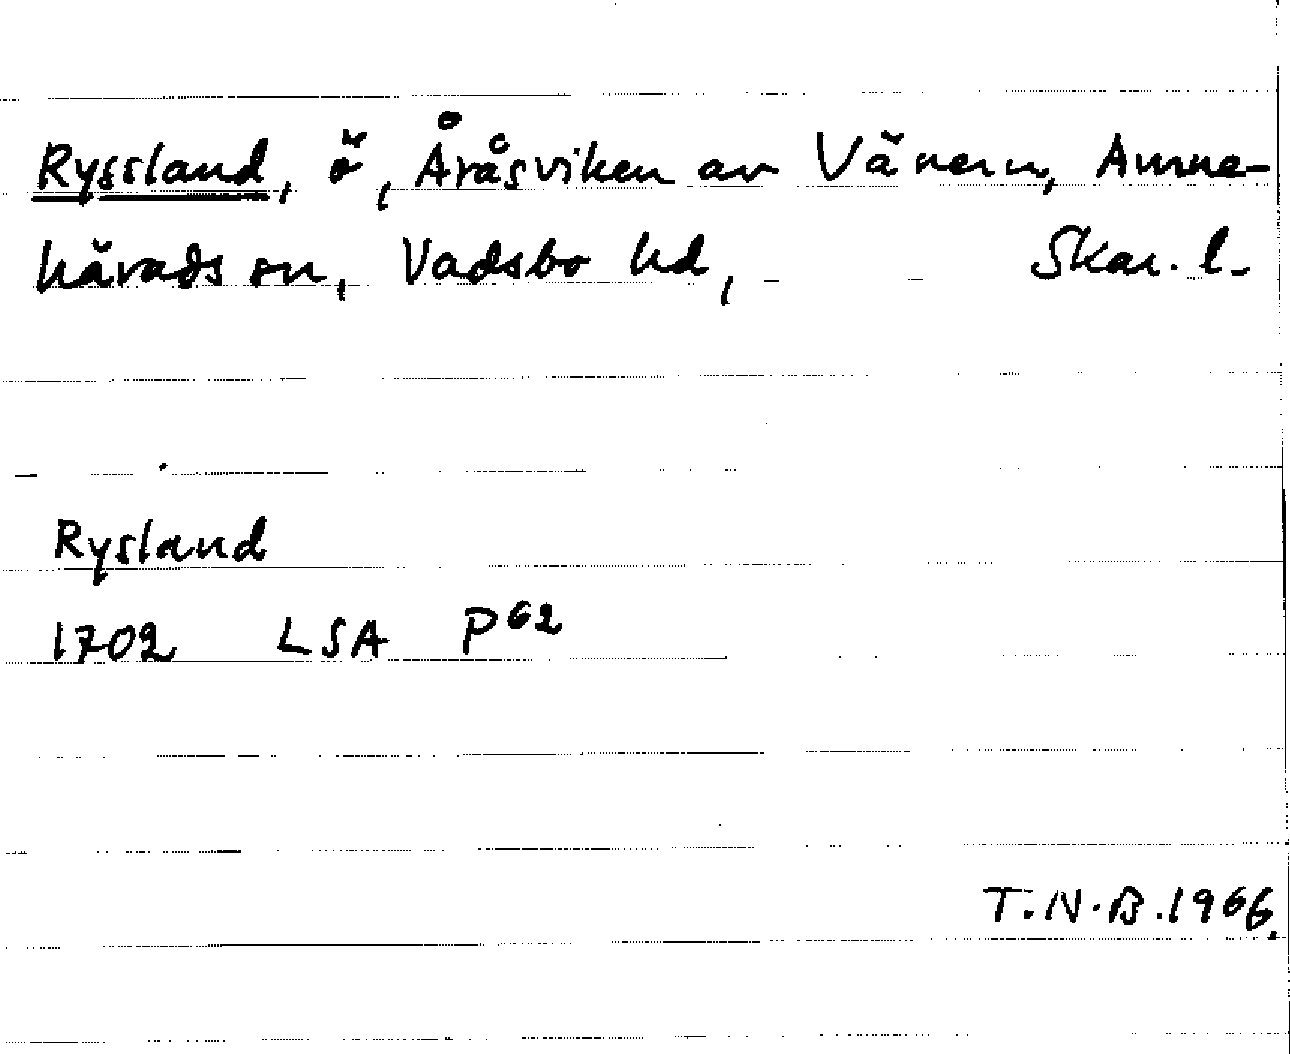 Ryssland, ö, Åråsviken av Vänern, Amne-
härads sn, Vadsbo hd, Skar. l.
Rysland
1702 LSA P62
T.N.B.1966.